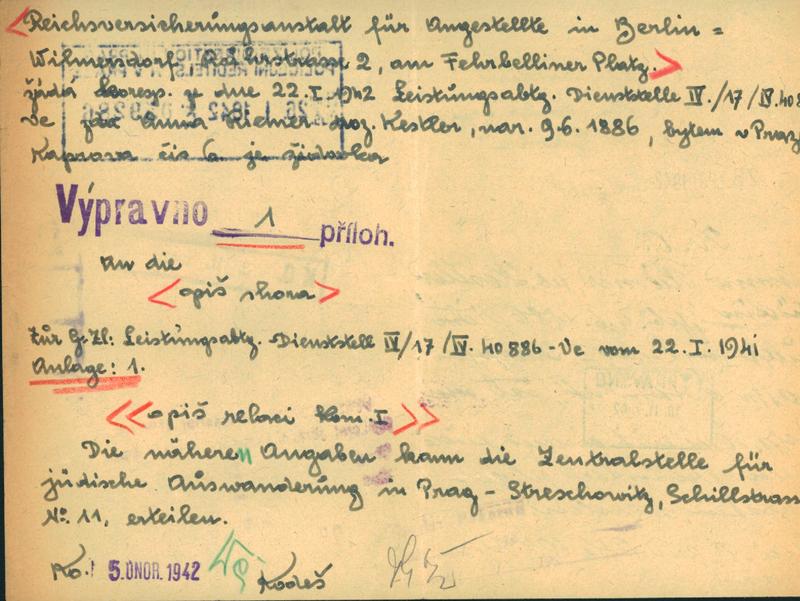 Reichsversicherungsanstalt für Angestellte in Berlin =
Wilmersdorf, Ruhrstrasse 2, am Fehrbelliner Platz.
žádá koresp. ze dne 22.I.1942 Leistungsabtg. Dienststelle IV./17/IV.408
Ve zda Anna Riemer roz. Kestler, nar. 9.6.1886, bytem v Praz
Kaprova čís 6 je židovka
Výpravno 1 příloh.
An die
opiš shora
Zur G.Zl: Leistungsabtg. Dienststell IV/17/IV. 40886 - Ve vom 22.I.1941
Anlage: 1.
opiš relaci kom. I
Die näheren Angaben kann die Zentralstelle für
jüdische Auswanderung in Prag - Streschowitz, Schillstrass
No. 11, erteilen.
Ko. 5. ÚNOR. 1942
Kodeš